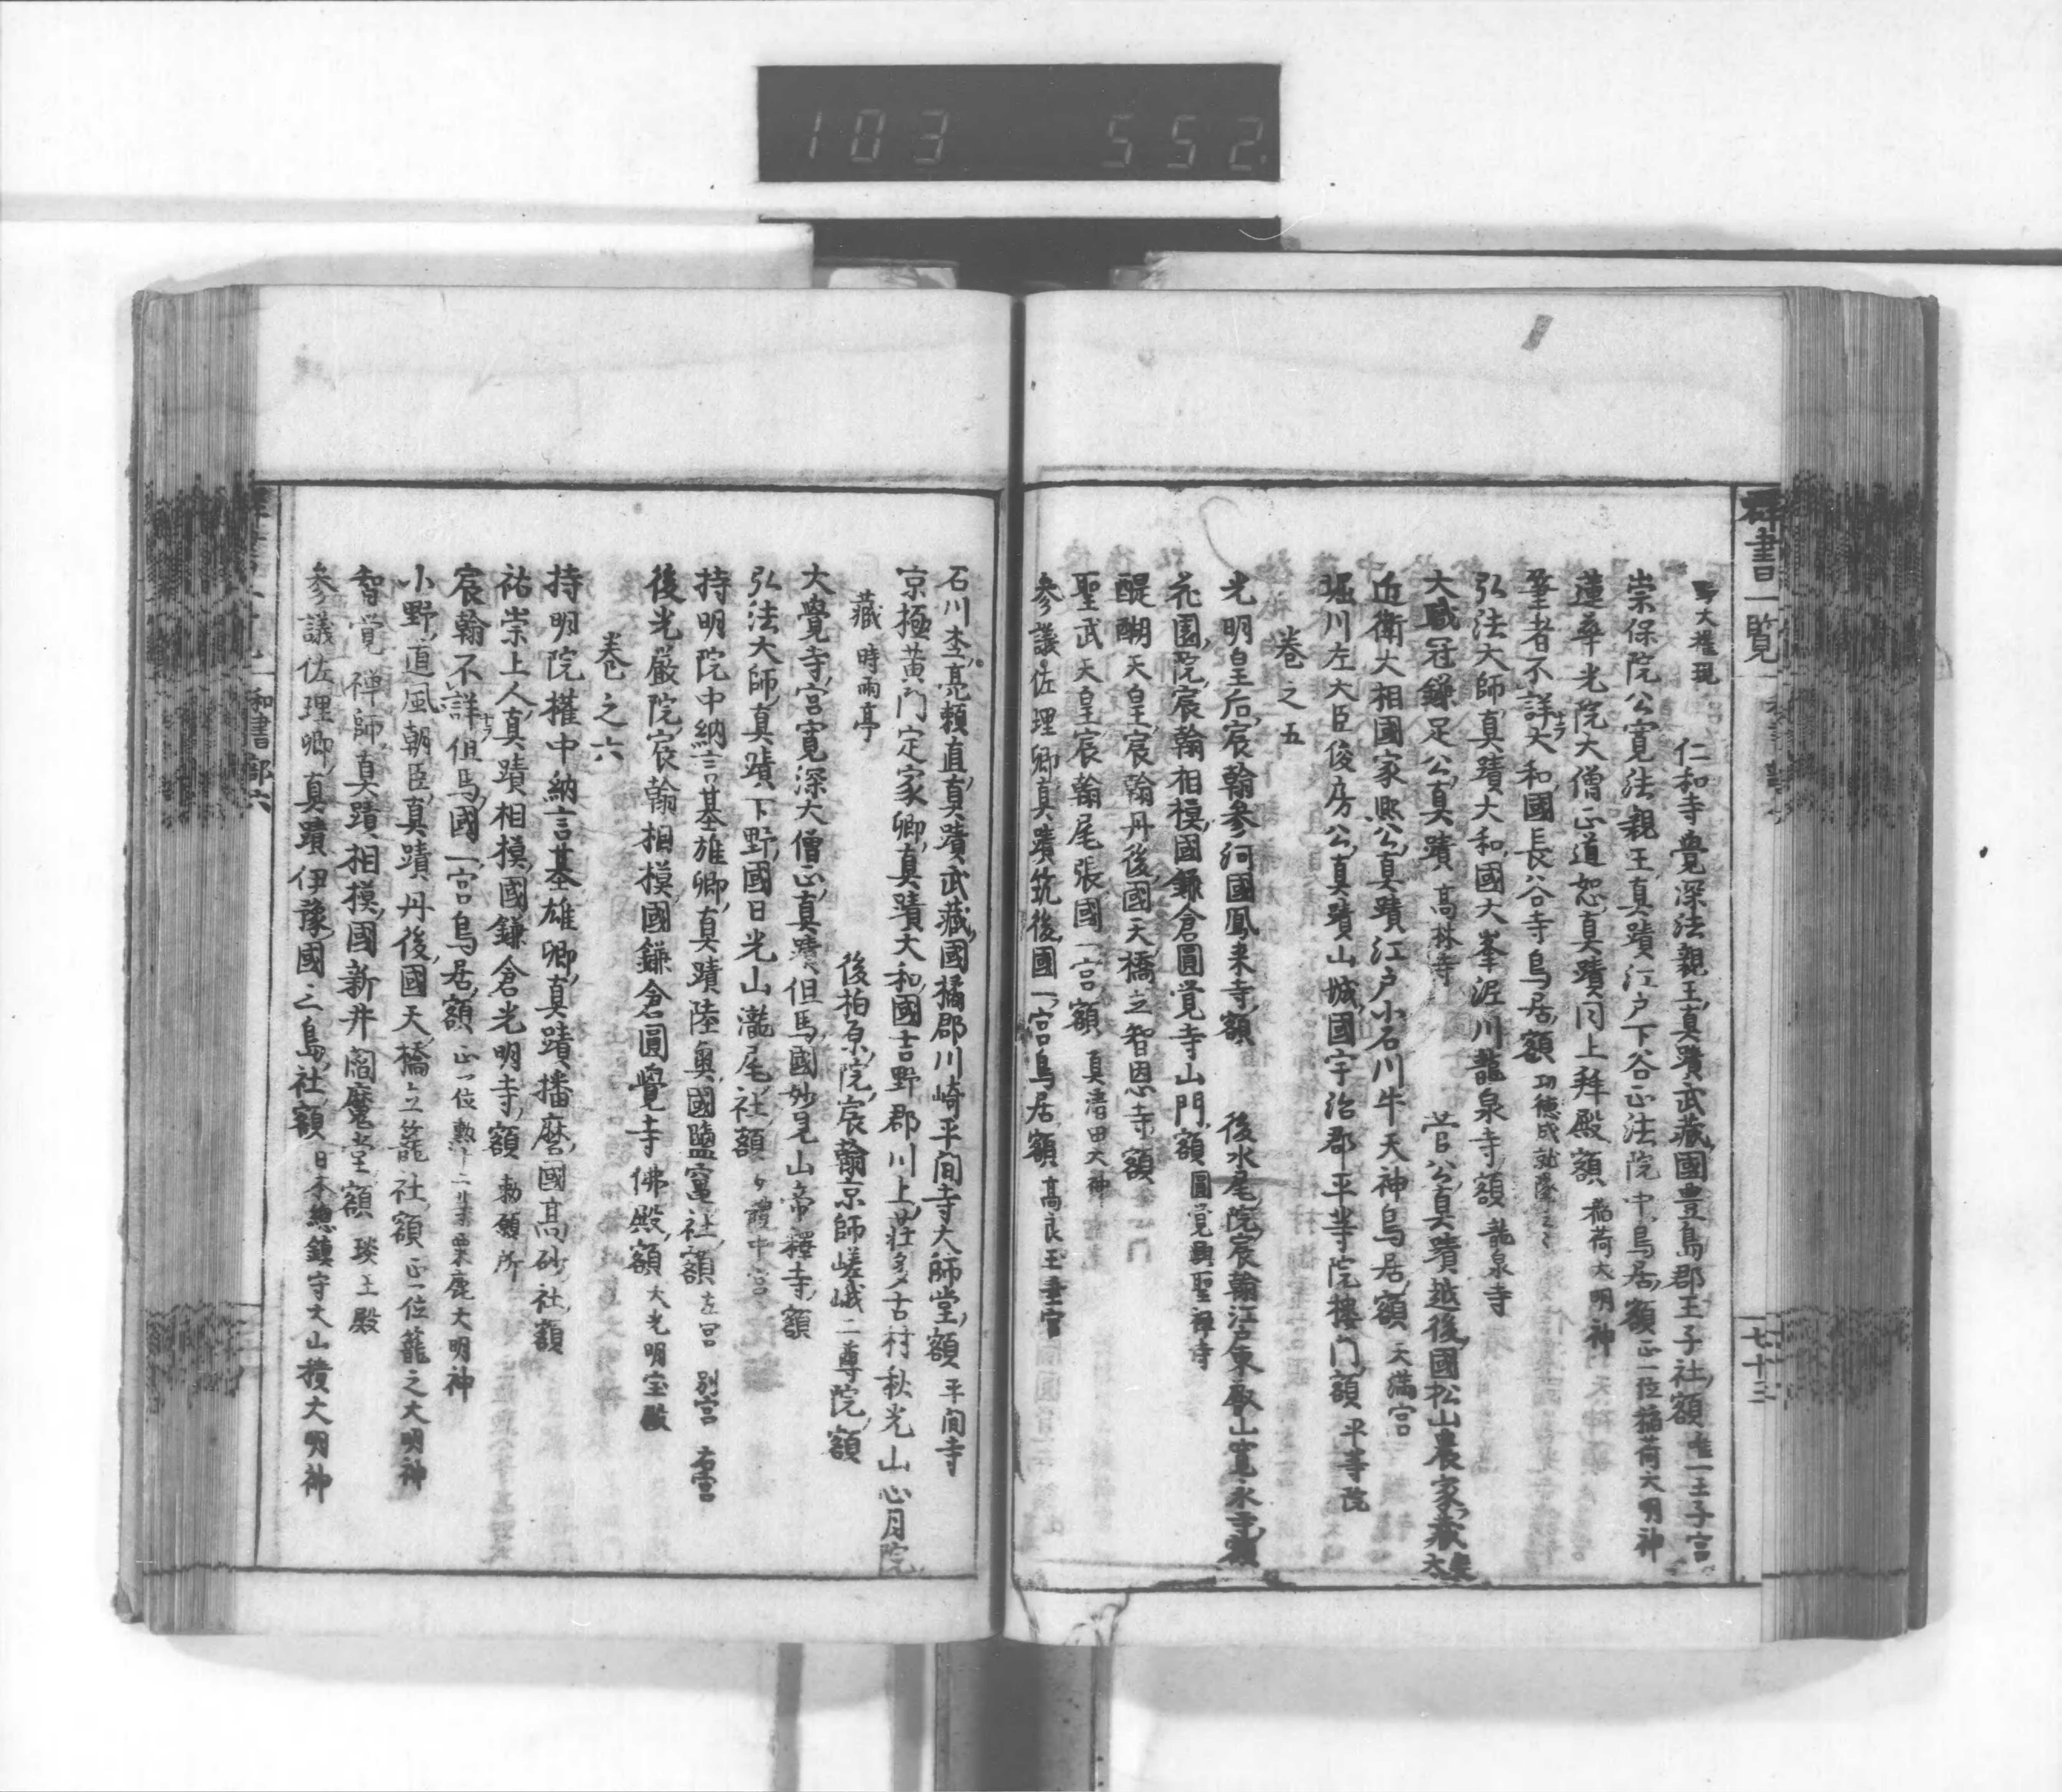 103 552
群書一覧
七十三
野大權現 仁和寺覺深法親王真蹟武藏國豊島郡王子社額 唯一王子宮
崇保院公寛法親王真蹟江戸下谷正法院中鳥居額 正一位稲荷大明神
蓮華光院大僧正道恕真蹟同上拜殿額 稲荷大明神
筆者不詳大和國長谷寺鳥居額
弘法大師真蹟大和國大峯泥川龍泉寺額 龍泉寺
大職冠鎌足公真蹟 高林寺 菅公真蹟越後國松山農家藏
近衛大相國家熙公真蹟江戸小石川牛天神鳥居額 天満宮
堀川左大臣俊房公真蹟山城國宇治郡平等院樓門額 平等院
卷之五
光明皇后宸翰参河國鳳来寺額 後水尾院宸翰江戸東叡山寛永寺額
花園院宸翰相模國鎌倉圓覚寺山門額 圓覚興聖禪寺
醍醐天皇宸翰丹後國天橋立智恩寺額
聖武天皇宸翰尾張國一宮額 真清田大神
参議佐理卿真蹟筑後國一宮鳥居額 高良玉垂宮
石川 亮頼直真蹟武藏國橘郡川崎平間寺大師堂額 平間寺
京極黄門定家卿真蹟大和國吉野郡川上莊多古村秋光山心月院
藏 時雨亭 後柏原院宸翰京師嵯峨二尊院額
大覺寺宮寛深大僧正真蹟但馬國妙見山帝釋寺額
弘法大師真蹟下野國日光山瀧尾社額 女體中宮
持明院中納言基雄卿真蹟陸奥國鹽竈社額 左宮 別宮 右宮
後光厳院宸翰相模國鎌倉圓覺寺佛殿額 大光明宝殿
卷之六
持明院權中納言基雄卿真蹟播麿國高砂社額
祐崇上人真蹟相模國鎌倉光明寺額 勅願所
宸翰不詳但馬國一宮鳥居額 正一位勲十二等粟鹿大明神
小野道風朝臣真蹟丹後國天橋立籠社額 正一位籠之大明神
智覚禅師真蹟相模國新井閻魔堂額 琰王殿
参議佐理卿真蹟伊豫國三島社額 日本總鎮守大山積大明神
和書部六